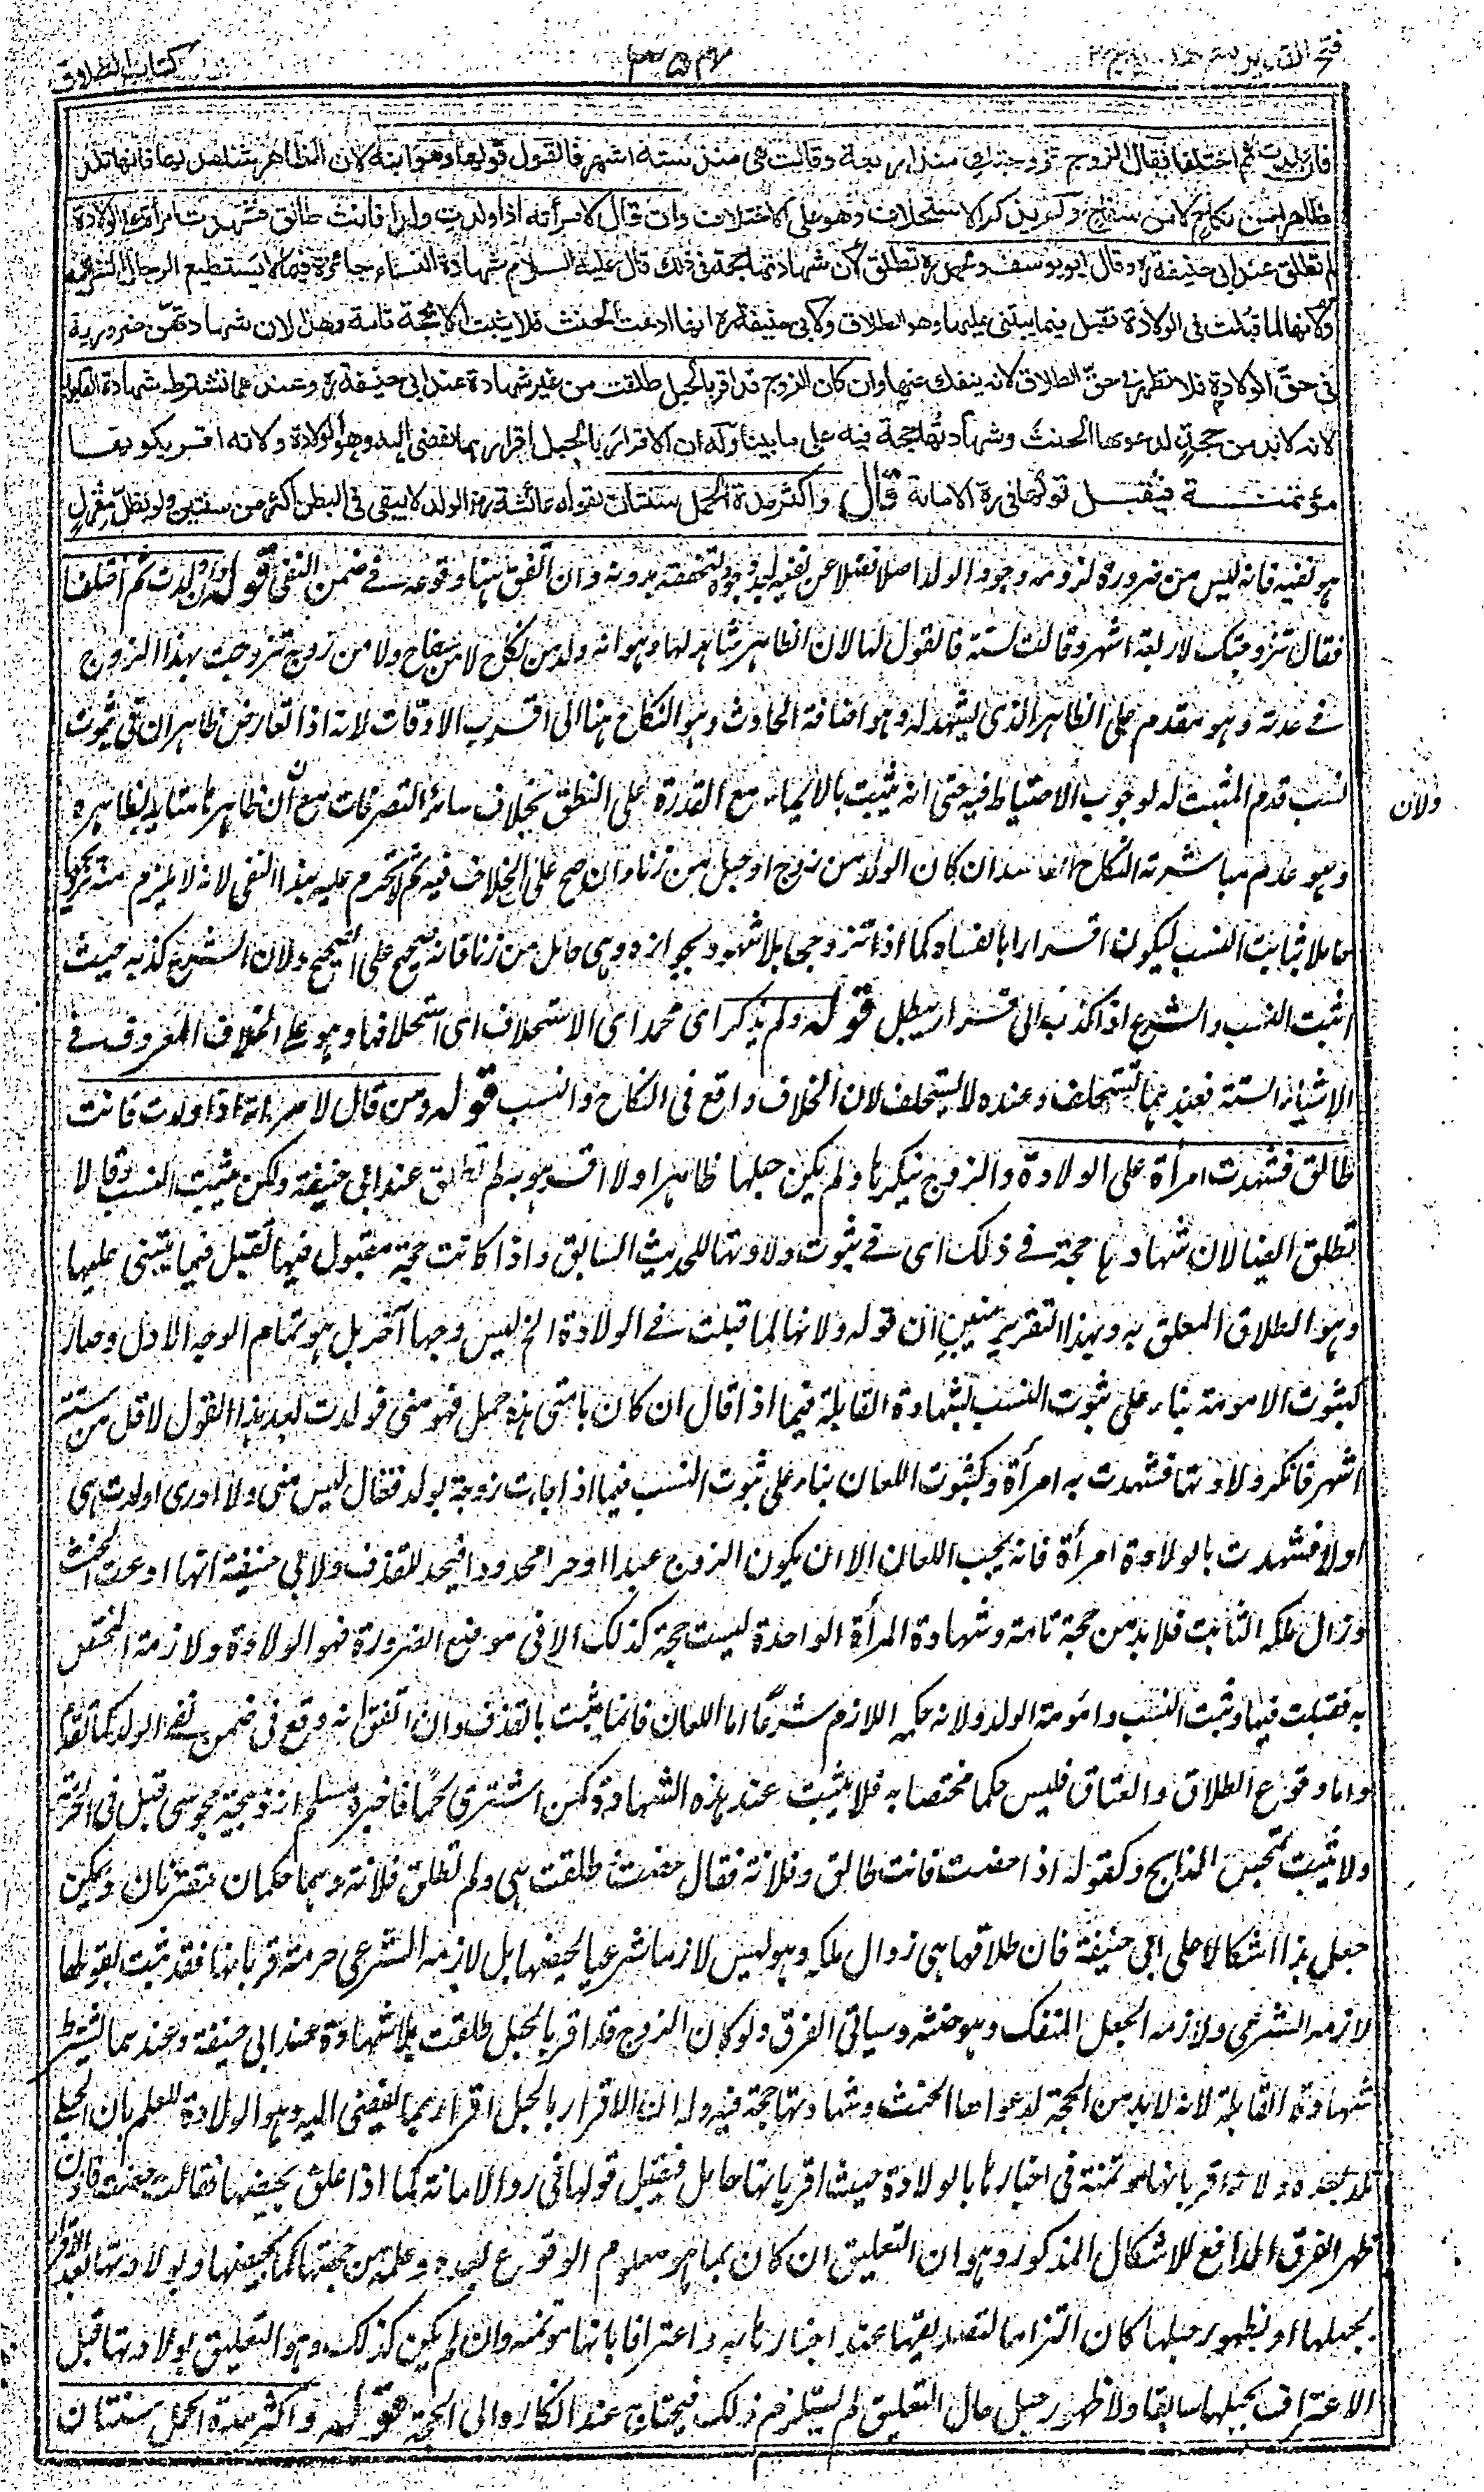 فتح القدير
٣٥٦
كتاب الطلاق
فان ولدت ثم اختلفا فقال الزوج تزوجتك منذ اربعة وقالت هى منذ ستة اشهر فالقول قولها وهو ابنه لان الظاهر شاهد لها فانها تلد
ظاهرا من نكاح لا من سفاح ولم يذكر الاستحلاف وهو على الاختلاف وان قال لامرأته اذا ولدت ولدا فانت طالق فشهدت امرأة على الولادة
لم تطلق عند ابى حنيفة ره وقال ابو يوسف ومحمد ره تطلق لان شهادتها حجة فى ذلك قال عليه السلام شهادة النساء جائزة فيما لا يستطيع الرجال النظر اليه
ولانها لما قبلت فى الولادة تقبل فيما يبتنى عليها وهو الطلاق ولابى حنيفة ره انها ادعت الحنث فلا يثبت الا بحجة تامة وهذا لان شهادتهن ضرورية
فى حق الولادة فلا تظهر فى حق الطلاق لانه ينفك عنها وان كان الزوج قد اقر بالحبل طلقت من غير شهادة عند ابى حنيفة ره وعندهما تشترط شهادة القابلة
لانه لا بد من حجة لدعوىها الحنث وشهادتها حجة فيه على ما بينا وله ان الاقرار بالحبل اقرار بما يفضى اليه وهو الولادة ولانه اقر بكونها
مؤتمنة فيقبل قولها فى رد الامانة قال واكثر مدة الحمل سنتان لقول عائشة رض الولد لا يبقى فى البطن اكثر من سنتين ولو بظل مغزل
هو نفيه فانه ليس من ضرورة لزومه وجود الولد اصلا فضلا عن نفيه لتحققه بدونه وان اتفق هنا وقوعه فى ضمن النفى قوله وان ولدت ثم اختلفا
فقال تزوجتك لاربعة اشهر وقالت لستة فالقول لها لان الظاهر شاهد لها وهو انه ولد من نكاح لا من سفاح ولا من زوج تزوجت بهذا الزوج
فى عدته وهو مقدم على الظاهر الذى يشهد له وهو اضافة الحادث وهو النكاح هنا الى اقرب الاوقات لانه اذا تعارض ظاهران فى ثبوت
نسب قدم المثبت له لوجوب الاحتياط فيه حتى انه يثبت بالايماء مع القدرة على النطق بخلاف سائر التصرفات مع ان ظاهرها متايد بظاهره
ولان
وهو عدم مباشرته النكاح الفاسد ان كان الولد من زوج او حبل من زنا وان صح على الخلاف فيه ثم لا تحرم عليه بهذا النفى لانه لا يلزم منه تزوجها
حاملا بثابت النسب ليكون اقرارا بالفساد كما اذا تزوجها بلا شهود لجوازه وهى حامل من زنا فانه صحيح على الصحيح ولان الشرع كذبه حيث
اثبت النسب والشرع اذا كذب الاقرار يبطل قوله ولم يذكر اى محمد اى الاستحلاف اى استحلافها وهو على الخلاف المعروف فى
الاشياء الستة فعندهما تستحلف وعنده لا تستحلف لان الخلاف واقع فى النكاح والنسب قوله ومن قال لامرأته اذا ولدت فانت
طالق فشهدت امرأة على الولادة والزوج ينكرها ولم يكن حبلها ظاهرا ولا اقر هو به لم تطلق عند ابى حنيفة ولكن يثبت النسب وقالا
تطلق ايضا لان شهادتها حجة فى ذلك اى فى ثبوت ولادتها للحديث السابق واذا كانت حجة مقبول فيها تقبل فيما يبتنى عليها
وهو الطلاق المعلق به وبهذا التقرير يتبين ان قوله ولانها لما قبلت فى الولادة الخ ليس وجها آخر بل هو تمام الوجه الاول وصار
كثبوت الامومة بناء على ثبوت النسب بشهادة القابلة فيما اذا قال ان كان بامتى هذه حبل فهو منى فولدت بعد هذا القول لاقل من ستة
اشهر فانكر ولادتها فشهدت به امرأة وكثبوت اللعان بناء على ثبوت النسب فيما اذا جاءت زوجة بولد فقال ليس منى ولا ادرى اولدت هى
اولا فشهدت بالولادة امرأة فانه يجب اللعان الا ان يكون الزوج عبدا او حرا محدودا فيحد للقذف ولابى حنيفة انها ادعت الحنث
وزوال ملكه الثابت فلا بد من حجة تامة وشهادة المرأة الواحدة ليست حجة كذلك الا فى موضع الضرورة فهو الولادة ولازمه المختص
به فقبلت فيها وثبت النسب وامومة الولد ولانه حكمه اللازم شرعًا اما اللعان فانما يثبت بالقذف وان اتفق انه وقع فى ضمن نفى الولد كما تقدم
واما وقوع الطلاق والعتاق فليس حكما مختصا به فلا يثبت عند هذه الشهادة وكمن اشترى لحمًا فاخبره مسلم انه ذبيحة مجوسى قبل فى الحرمة
ولا يثبت تمجس الذابح وكقوله اذا حضت فانت طالق وفلانة فقال حضت طلقت هى ولم تطلق فلانة وهما حكمان مقترنان ولكن
جعل هذا اشكالا على ابى حنيفة فان طلاقها هى زوال ملكه وهو ليس لازما شرعيا لحيضها بل لازمه الشرعى حرمة قربانها فقد ثبت بقولها
لازمه الشرعى ولازمه الجعل المنفك وهو حنثه وسياتى الفرق ولو كان الزوج قد اقر بالحبل طلقت بلا شهادة عند ابى حنيفة وعندهما تشترط
شهادة القابلة لانه لا بد من الحجة لدعواها الحنث وشهادتها حجة فيه وله ان الاقرار بالحبل اقرار بما يفضى اليه وهو الولادة للعلم بان الحبلى
تلد بعده ولانه اقر بانها مؤتمنة فى اخبارها بالولادة حيث اقر بانها حامل فيقبل قولها فى رد الامانة كما اذا علق بحيضها فقالت حضت فان
ظهر الفرق الدافع للاشكال المذكور وهو ان التعليق ان كان بما هو معلوم الوقوع بعده وعلمه من جهتها كما بحيضها او بولادتها بعد الاقرار
بحبلها او بظهور حبلها كان التزاما لتصديقها عند اخبارها به واعترافا بانها مؤتمنة وان لم يكن كذلك وهو التعليق بولادتها قبل
الاعتراف بحبلها سابقا ولا ظهور حبل حال التعليق لم يستلزم ذلك فيحتاج عند انكاره الى الحجة قوله واكثر مدة الحمل سنتان